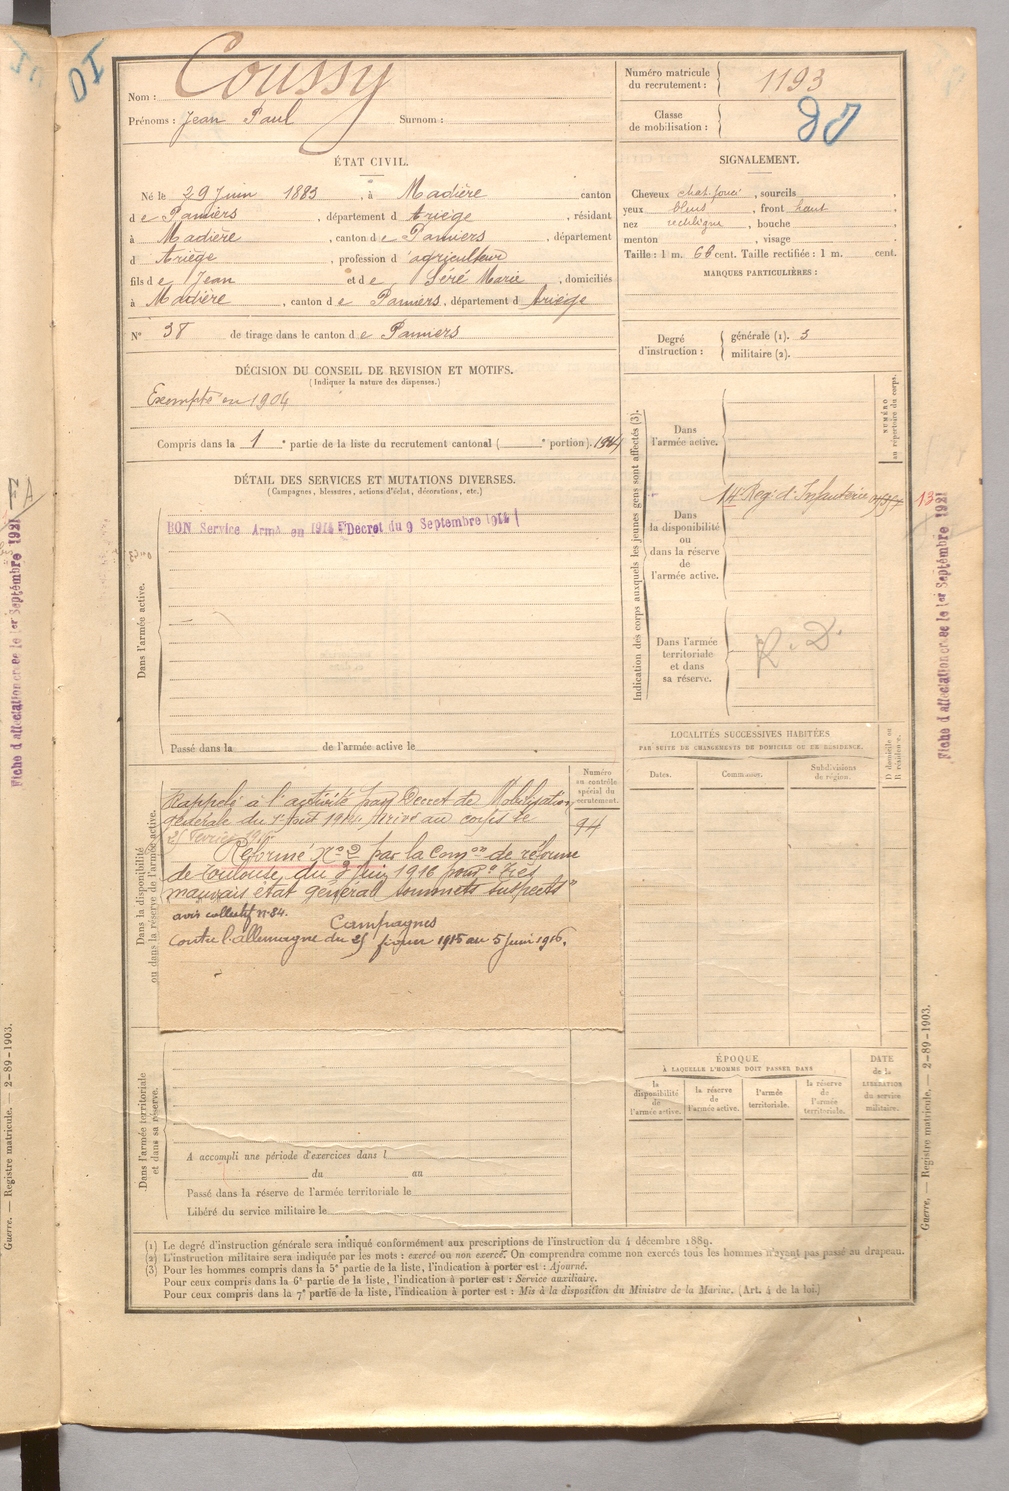 Nom : Coussy
Prénoms : Jean Paul Surnom :
Numéro matricule du recrutement : 1193
Classe de mobilisation :
ÉTAT CIVIL.
Né le 29 Juin 1883, à Madière canton
de Pamiers, département d Ariège, résidant
à Madière, canton de Pamiers, département
d Ariège, profession d'agriculteur
fils de Jean et de Séré Marie, domiciliés
à Madière, canton de Pamiers, département d Ariège
N° 38 de tirage dans le canton de Pamiers
SIGNALEMENT.
Cheveux chat. foncé, sourcils
yeux bleus, front haut
nez rectiligne, bouche
menton, visage
Taille : 1 m. 66 cent. Taille rectifiée : 1 m. cent.
MARQUES PARTICULIÈRES :
Degré d'instruction :
générale (1). 3
militaire (2).
DÉCISION DU CONSEIL DE REVISION ET MOTIFS.
(Indiquer la nature des dispenses.)
Exempté en 1904
Compris dans la 1e partie de la liste du recrutement cantonal ( e portion). 1914
DÉTAIL DES SERVICES ET MUTATIONS DIVERSES.
(Campagnes, blessures, actions d'éclat, décorations, etc.)
BON Service Armé en 1914 Decret du 9 Septembre 1914
Dans l'armée active.
Passé dans la de l'armée active le
Indication des corps auxquels les jeunes gens sont affectés (3).
NUMÉRO au répertoire du corps.
Dans l'armée active.
14e Reg. d'Infanterie
13
Dans la disponibilité ou dans la réserve de l'armée active.
Dans l'armée territoriale et dans sa réserve.
R. D.
Dans la disponibilité ou dans la réserve de l'armée active.
Numéro au contrôle spécial du recrutement.
94
Rappelé à l'activité par Decret de Mobilisation
générale du 1er Août 1914 Arrivé au corps le
25 Fevrier 1915
Réformé N° 2 par la Comon de réforme
de Toulouse, du 3 Juin 1916 pour "Très
mauvais état général sommets suspects"
avis collectif n° 84.
Campagnes
Contre l'allemagne du 25 février 1915 au 5 juin 1916.
LOCALITÉS SUCCESSIVES HABITÉES
PAR SUITE DE CHANGEMENTS DE DOMICILE OU DE RÉSIDENCE.
Dates. Communes. Subdivisions de région. D domicile ou R résidence.
Dans l'armée territoriale et dans sa réserve.
A accompli une période d'exercices dans l
du au
Passé dans la réserve de l'armée territoriale le
Libéré du service militaire le
ÉPOQUE
À LAQUELLE L'HOMME DOIT PASSER DANS
la disponibilité de l'armée active.
la réserve de l'armée active.
l'armée territoriale.
la réserve de l'armée territoriale.
DATE de la LIBÉRATION du service militaire.
(1) Le degré d'instruction générale sera indiqué conformément aux prescriptions de l'instruction du 4 décembre 1889.
(2) L'instruction militaire sera indiquée par les mots : exercé ou non exercé. On comprendra comme non exercés tous les hommes n'ayant pas passé au drapeau.
(3) Pour les hommes compris dans la 5e partie de la liste, l'indication à porter est : Ajourné.
Pour ceux compris dans la 6e partie de la liste, l'indication à porter est : Service auxiliaire.
Pour ceux compris dans la 7e partie de la liste, l'indication à porter est : Mis à la disposition du Ministre de la Marine. (Art. 4 de la loi.)
Fiche d'affectation créée le 1er Septembre 1921
Guerre. — Registre matricule. — 2-89-1903.
Fiche d'affectation créée le 1er Septembre 1921
Guerre. — Registre matricule. — 2-89-1903.